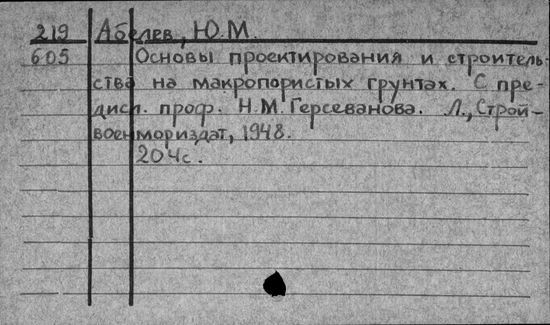 219 Абелев, Ю.М.
605 Основы проектирования и строитель-
ства на макропористых грунтах. С пре-
дисл. проф. Н.М. Герсеванова. Л., Строй-
военмориздат, 1948.
204с.